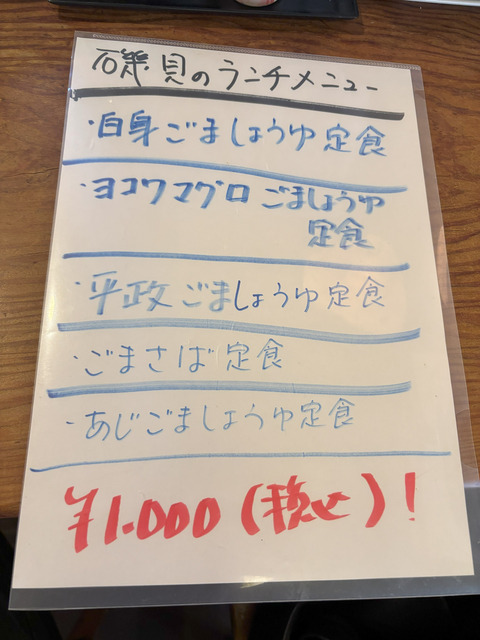 磯貝のランチメニュー
・白身ごましょうゆ定食
・ヨコワマグロ ごましょうゆ
定食
・平政ごましょうゆ定食
・ごまさば定食
・あじごましょうゆ定食
¥1.000(税込)!